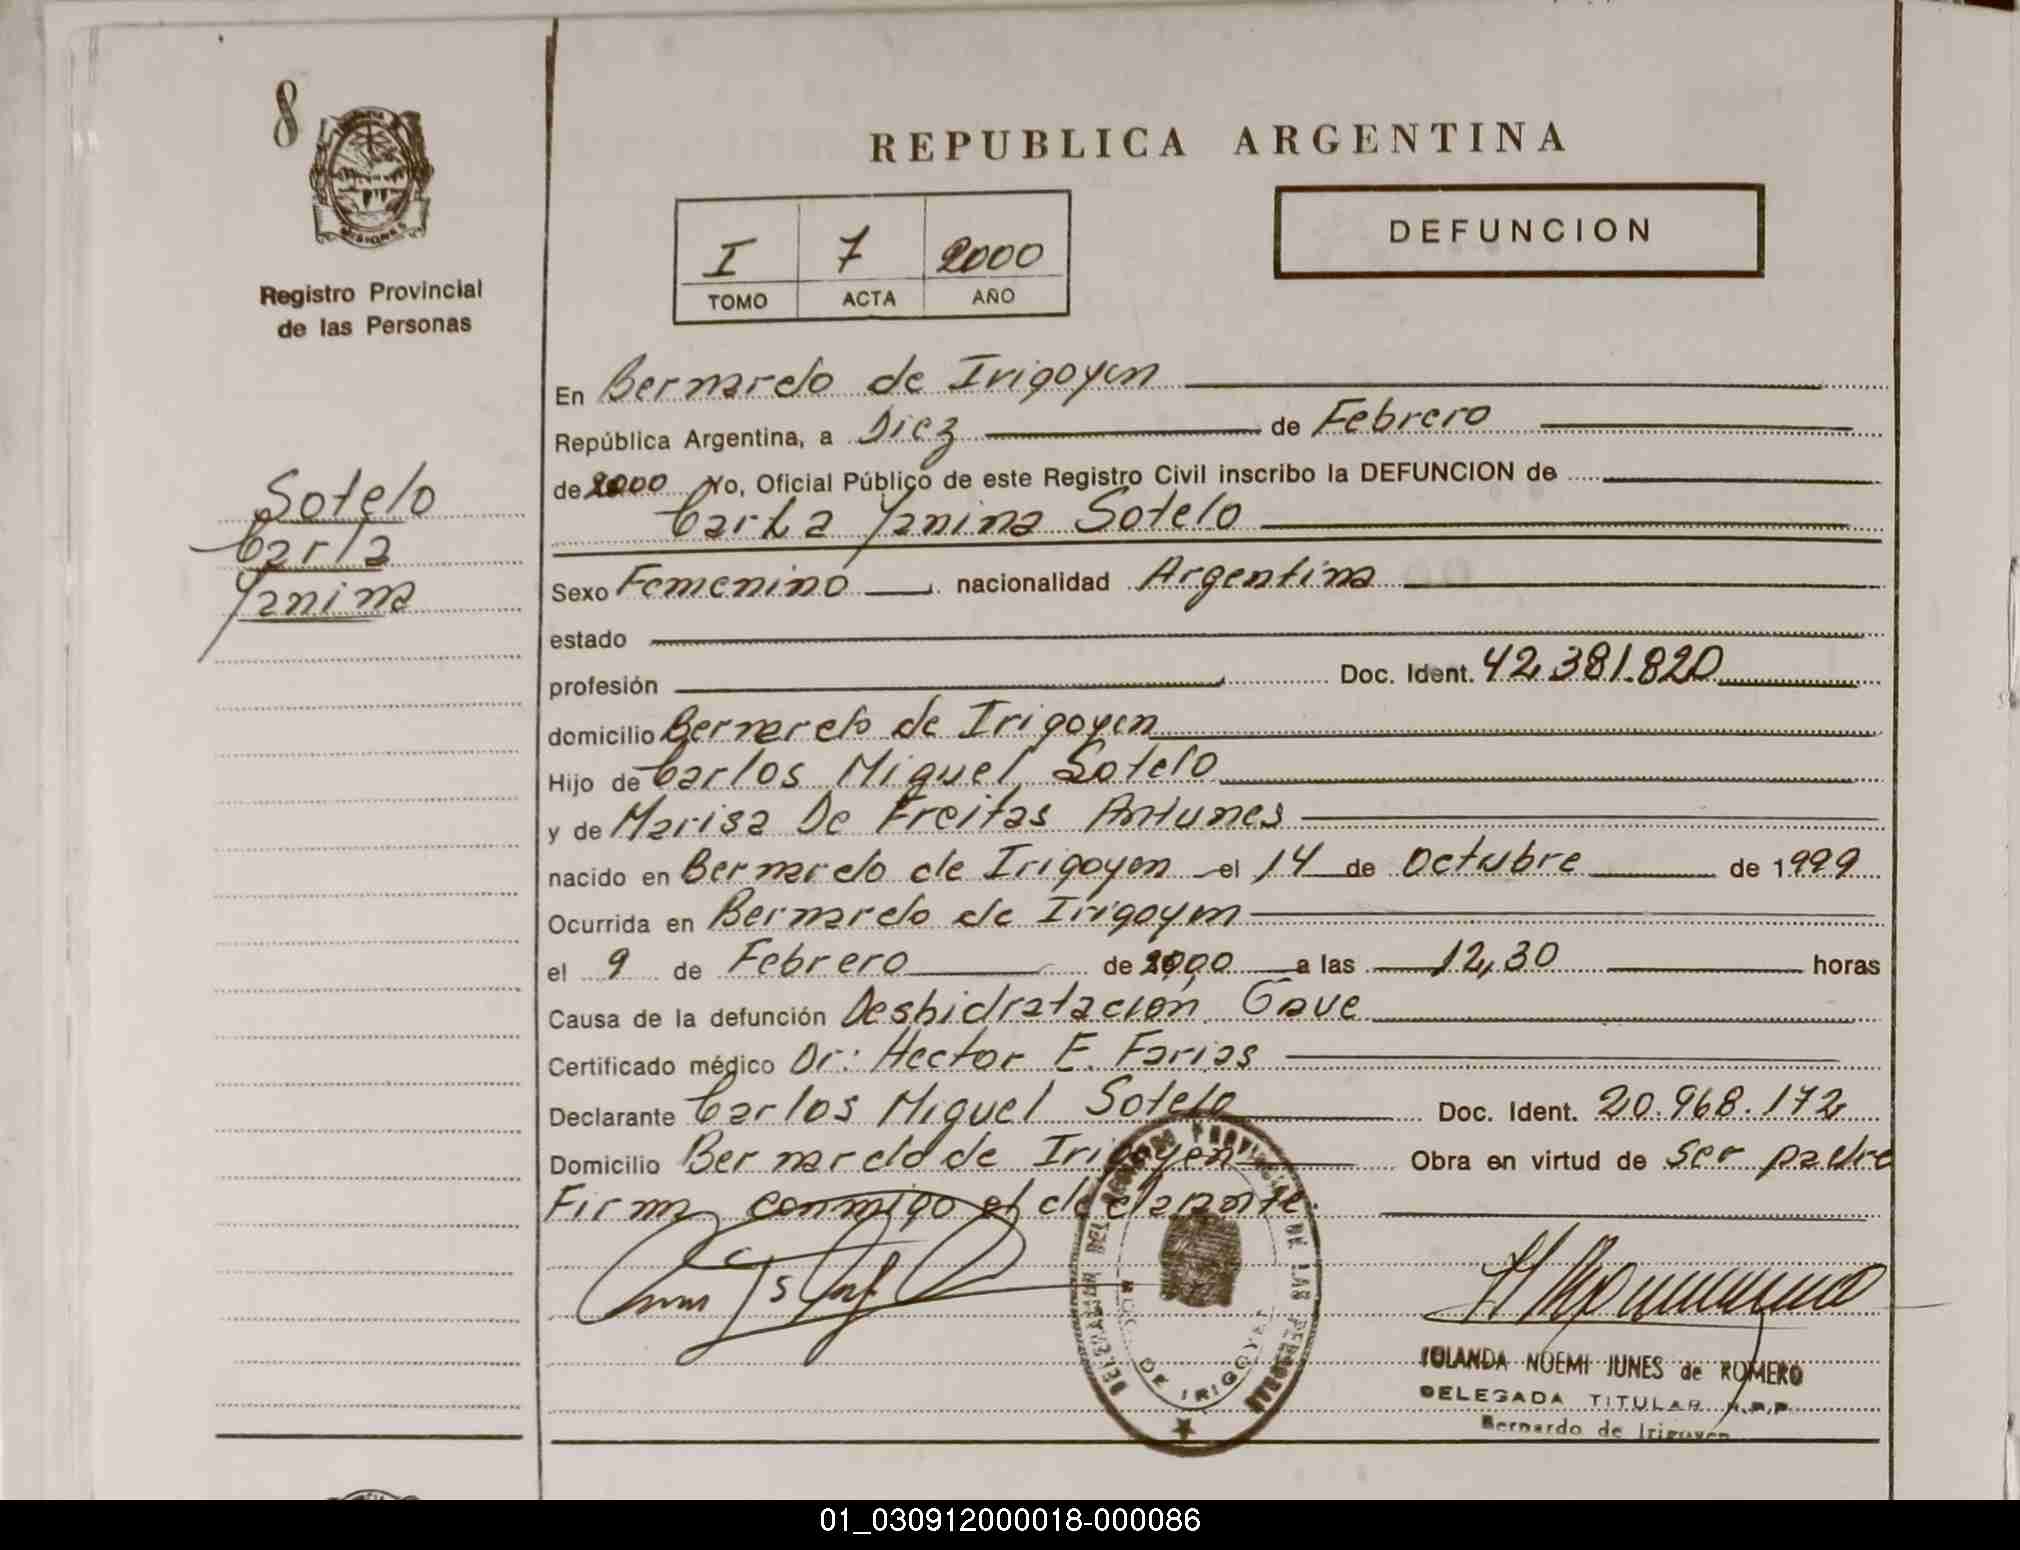 8
MISIONES
Registro Provincial
de las Personas
Sotelo
Carla
Yanina
REPUBLICA ARGENTINA
I 7 2000
TOMO ACTA AÑO
DEFUNCION
En Bernardo de Irigoyen
República Argentina, a Diez de Febrero
de 2000 Yo, Oficial Público de este Registro Civil inscribo la DEFUNCION de
Carla Yanina Sotelo
Sexo Femenino nacionalidad Argentina
estado
profesión Doc. Ident. 42.381.820
domicilio Bernardo de Irigoyen
Hijo de Carlos Miguel Sotelo
y de Marisa De Freitas Antunes
nacido en Bernardo de Irigoyen el 14 de Octubre de 1999
Ocurrida en Bernardo de Irigoyen
el 9 de Febrero de 2000 a las 12,30 horas
Causa de la defunción Deshidratación Gave
Certificado médico Dr: Hector E. Farias
Declarante Carlos Miguel Sotelo Doc. Ident. 20.968.172
Domicilio Bernardo de Irigoyen Obra en virtud de ser padre
Firma conmigo el declarante.
DE IRIGOYEN
YOLANDA NOEMI JUNES de ROMERO
DELEGADA TITULAR R.P.P.
Bernardo de Irigoyen
01_030912000018-000086